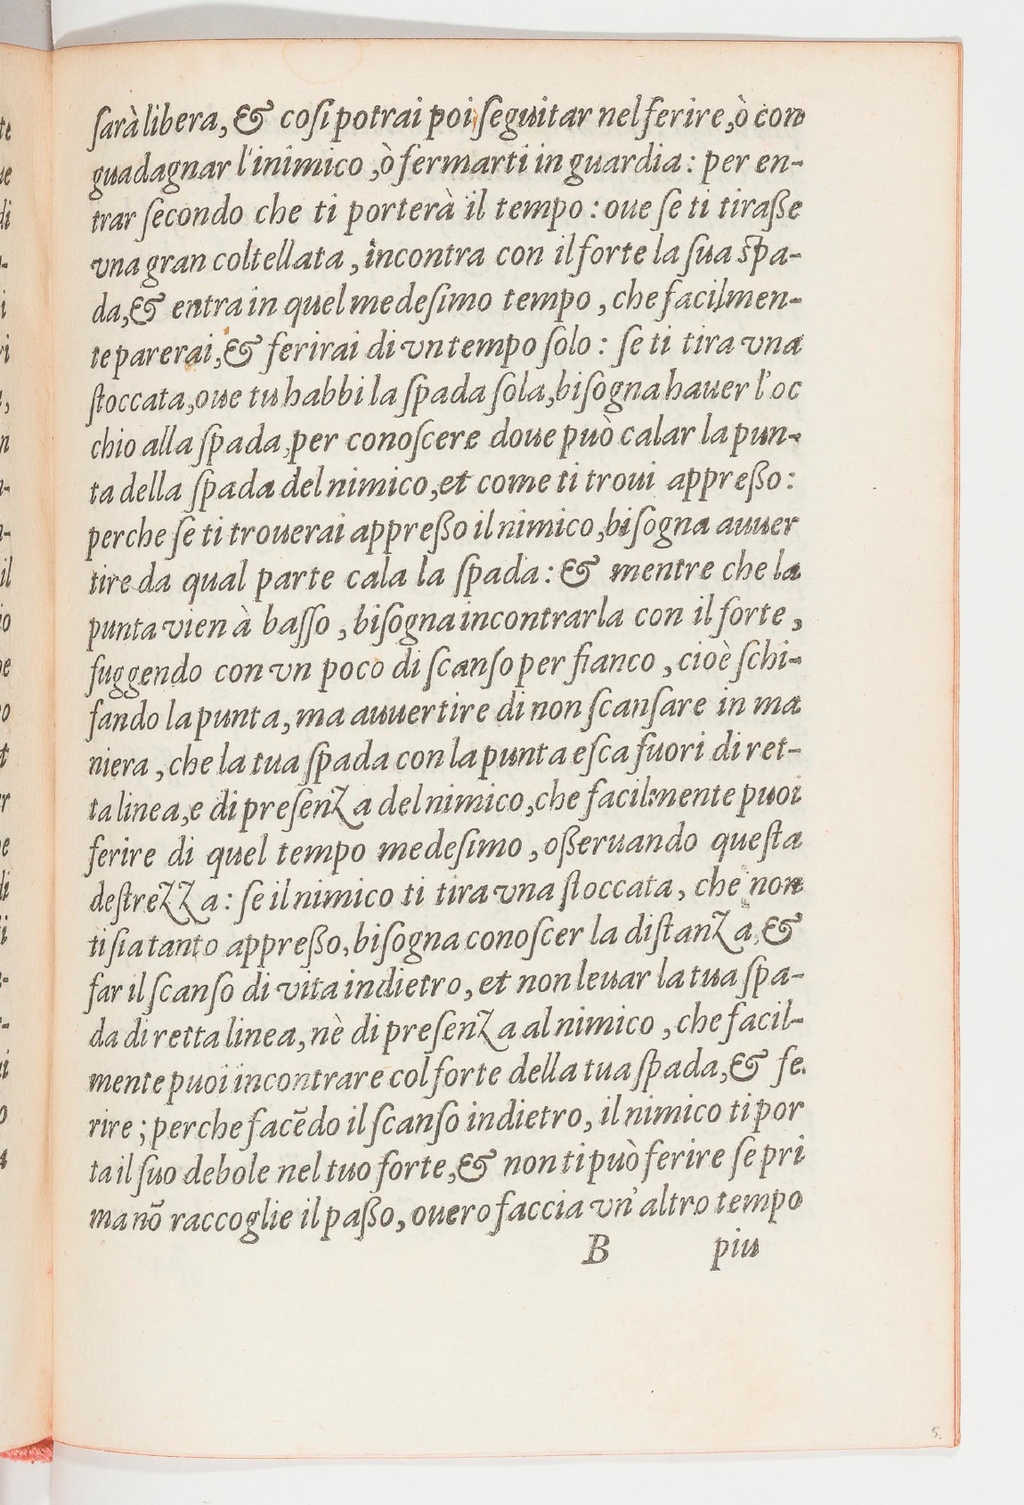 sarà libera, & cosi potrai poi seguitar nel ferire, ò con
guadagnar l'inimico, ò fermarti in guardia: per en-
trar secondo che ti porterà il tempo: oue se ti tiraße
vna gran coltellata, incontra con il forte la sua spa-
da, & entra in quel medesimo tempo, che facilmen-
te parerai, & ferirai di vn tempo solo: se ti tira vna
stoccata, oue tu habbi la spada sola, bisogna hauer l'oc
chio alla spada, per conoscere doue può calar la pun-
ta della spada del nimico, et come ti troui appreßo:
perche se ti trouerai appreßo il nimico, bisogna auuer
tire da qual parte cala la spada: & mentre che la
punta vien à basso, bisogna incontrarla con il forte,
fuggendo con vn poco di scanso per fianco, cioè schi-
fando la punta, ma auuertire di non scansare in ma
niera, che la tua spada con la punta esca fuori di ret-
ta linea, e di presenza del nimico, che facilmente puoi
ferire di quel tempo medesimo, oßeruando questa
destrezza: se il nimico ti tira vna stoccata, che non
ti sia tanto appreßo, bisogna conoscer la distanza, &
far il scanso di vita indietro, et non leuar la tua spa-
da di retta linea, nè di presenza al nimico, che facil-
mente puoi incontrare col forte della tua spada, & fe.
rire; perche facẽdo il scanso indietro, il nimico ti por
ta il suo debole nel tuo forte, & non ti può ferire se pri
ma nõ raccoglie il paßo, ouero faccia vn'altro tempo
B piu
5.